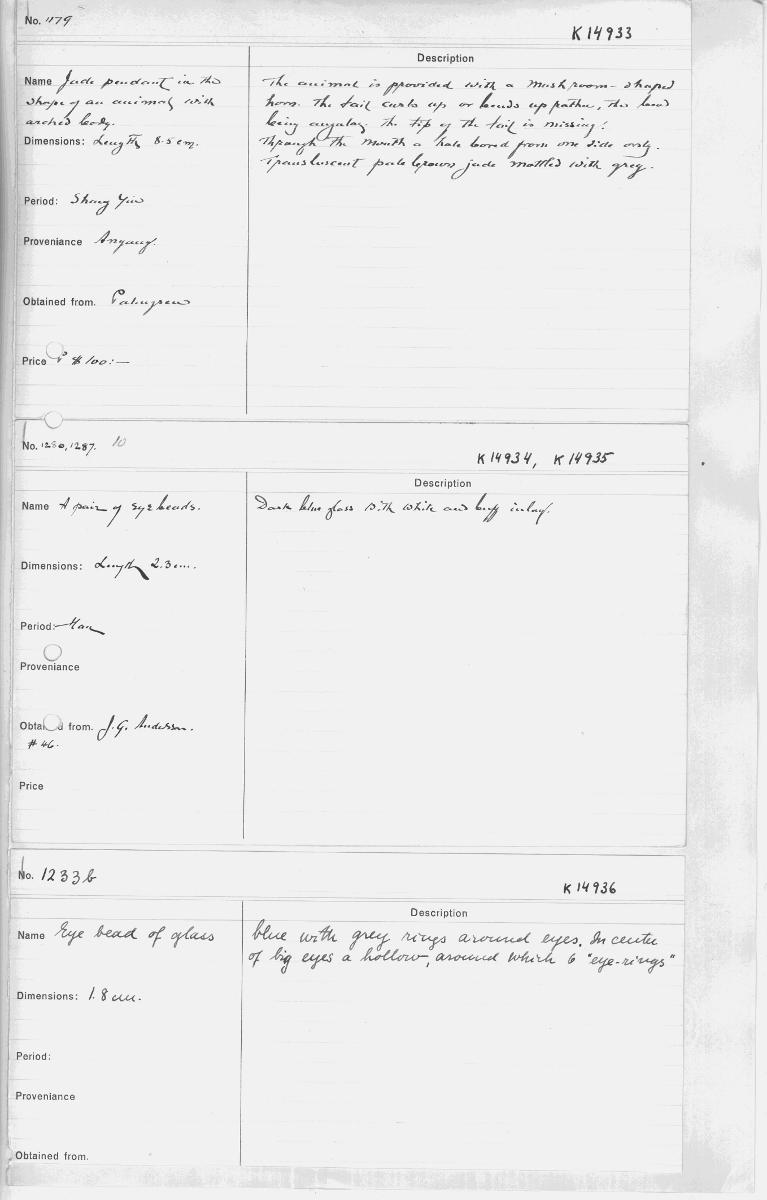 No. 1179
K 14933
Description
Name Jade pendant in the
shape of an animal with
arched body.
Dimensions: Length 8.5 cm.
Period: Shang Yin
Proveniance Anyang.
Obtained from. Palmgren
Price $ 100:—
The animal is provided with a mushroom-shaped
horn. The tail curls up or bends up rather, the bend
being angular. the tip of the tail is missing.
Through the mouth a hole bored from one side only.
Transluscent pale brown jade mottled with grey.
No. 1280, 1287. 10
K 14934, K 14935
Description
Name A pair of eye beads.
Dimensions: Length 2.3 cm.
Period: Han
Proveniance
Obtained from. J. G. Andersson.
# 46.
Price
Dark blue glass with white and buff inlay.
No. 1233b
K 14936
Description
Name Eye bead of glass
Dimensions: 1.8 cm.
Period:
Proveniance
Obtained from.
blue with grey rings around eyes. In center
of big eyes a hollow, around which 6 "eye-rings"